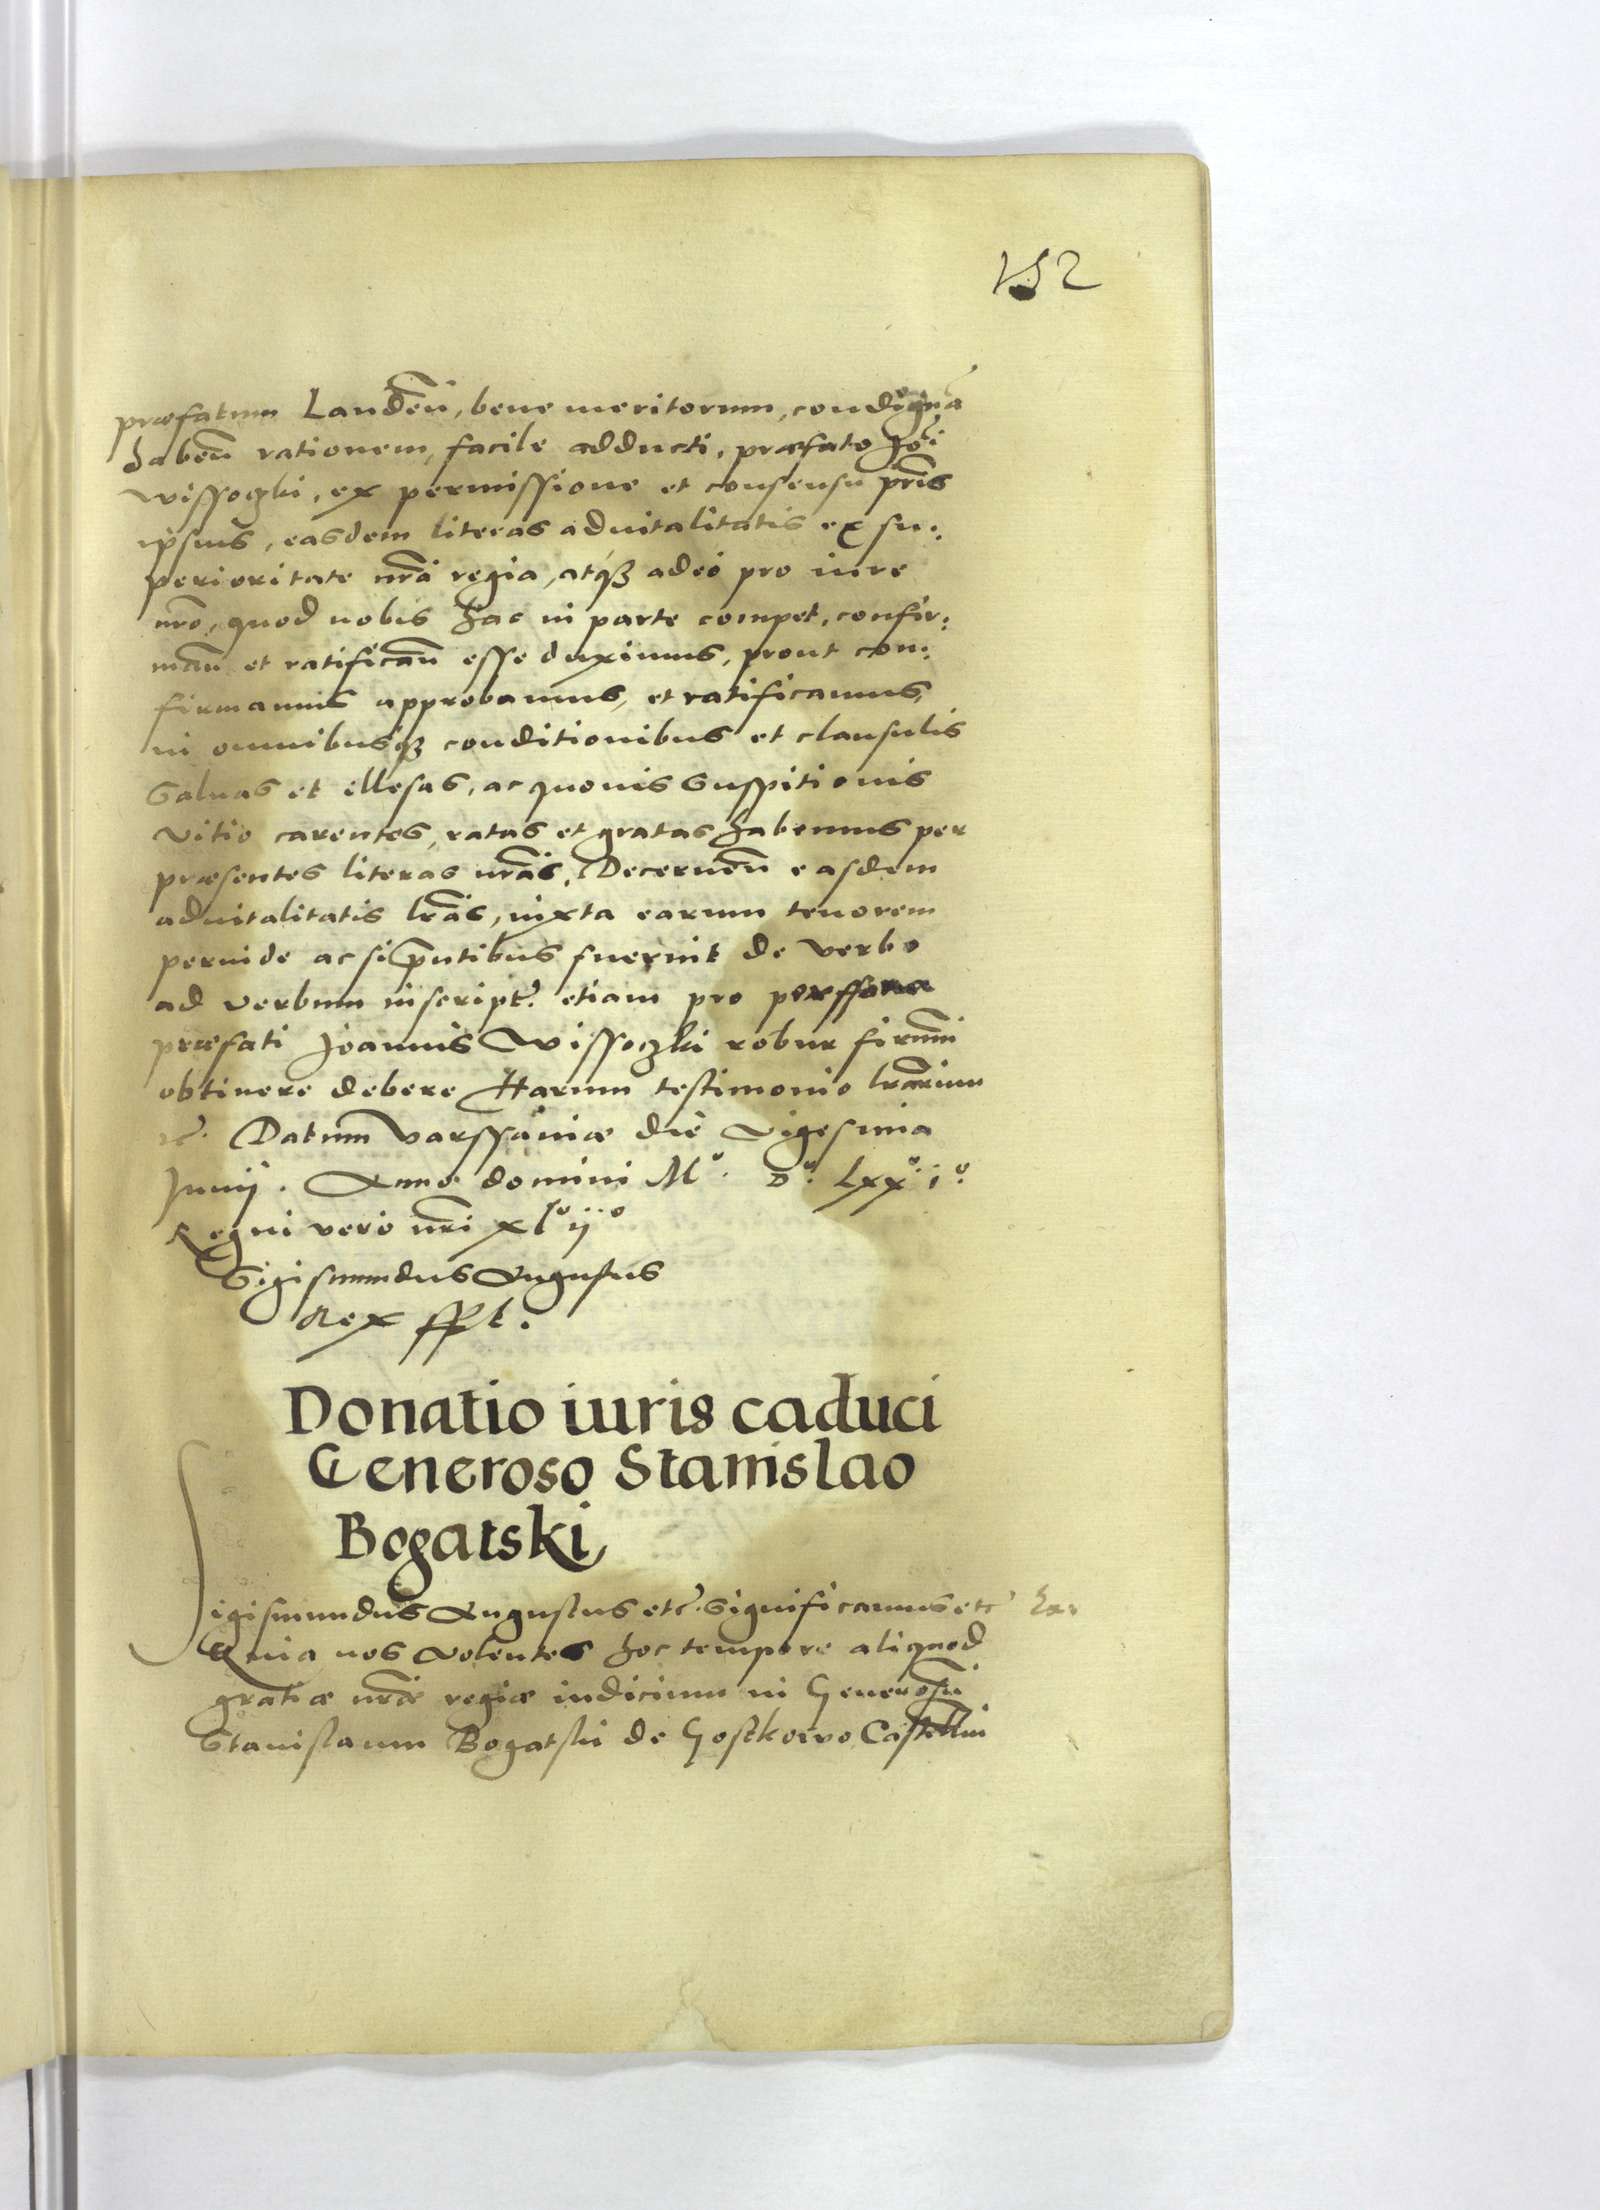 152
præfatum Landen̄, bene meritorum, condignā
haben̄ rationem, facile adducti, præfato Joī
Wissoczki, ex permissione et consensu pr̄is
ipsius, easdem literas aduitalitatis ex su:
perioritate nr̄a regia, atq̃ꝫ adeo pro iure
nr̄o, quod nobis hac in parte compet, confir:
man̄ et ratifican̄ esse duximus, prout con:
firmamus approbamus, et ratificamus,
in omnibusq̃ꝫ conditionibus et clausulis
Saluas et illesas, ac quouis Suspitionis
vitio carentes, ratas et gratas habemus per
præsentes literas nr̄as, Decernen̄ easdem
aduitalitatis lr̄as, iuxta earum tenorem
perinde ac si pn̄tibus fuerint de verbo
ad verbum inscript. etiam pro perssona
præfati Joannis Wissoczki robur firmū
obtinere debere Harum testimonio lr̄arum
etc. Datum Varssauiæ die Vigesima
Junij. Anno domini Mº. Dº. Lxxº iº
Regni vero nr̄i xlº ijº
Sigismundus Augustus
Rex sspt.
Donatio iuris caduci
Generoso Stanislao
Bogatski
Sigismundus Augustus etc. Significamus etc
Quia nos Volentes hoc tempore aliquod
gratiæ nr̄æ regiæ indicium in Generosū
Stanislaum Bogatski de Gostkowo Castellm̄